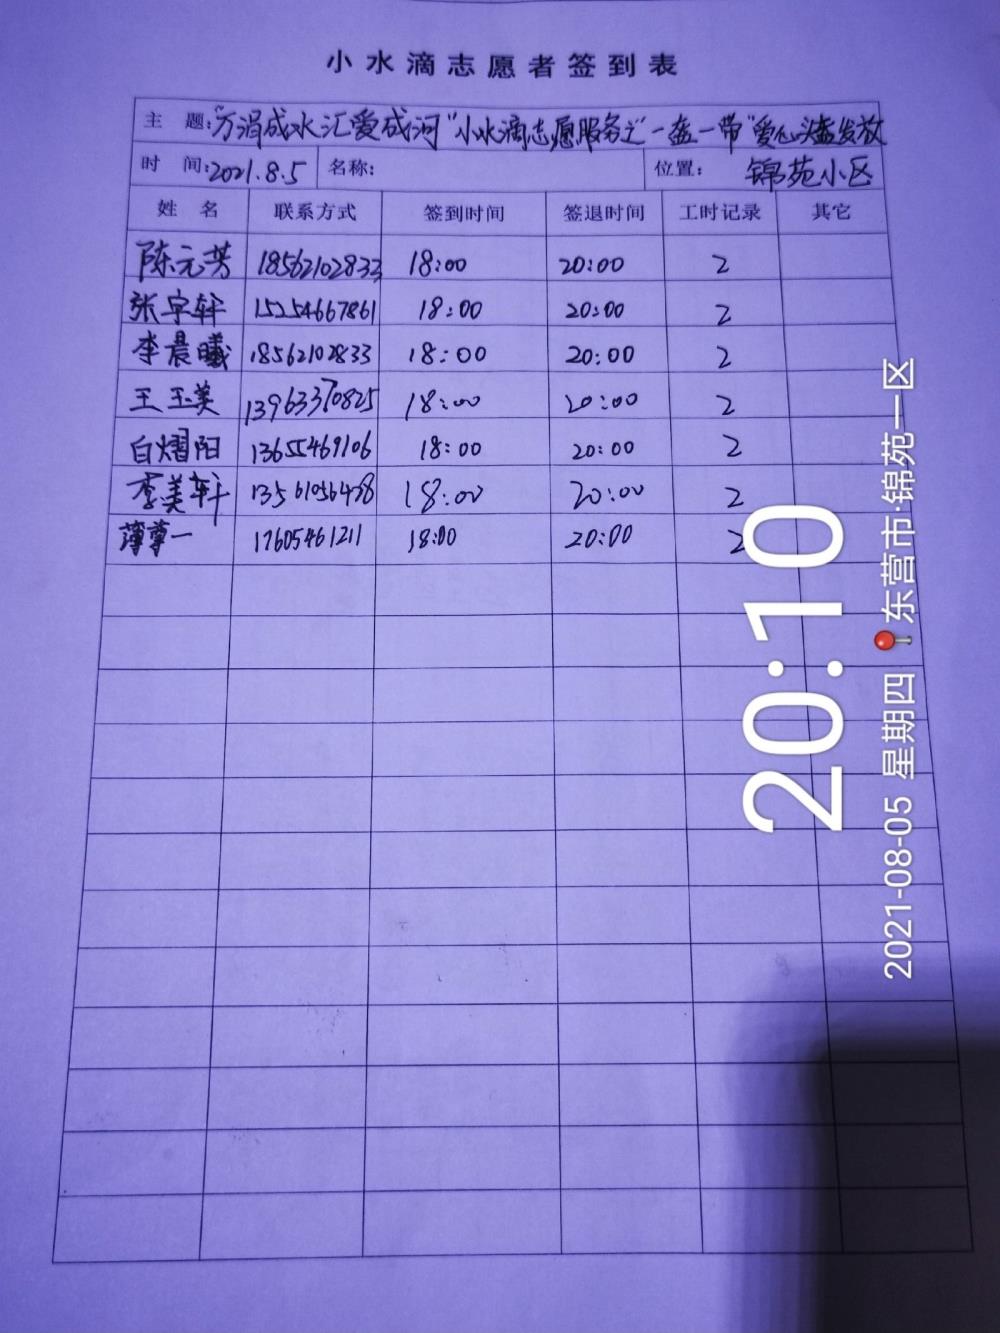 小水滴志愿者签到表
主 题:"万涓成水汇爱成河"小水滴志愿服务之"一盔一带"爱心头盔发放
时 间:2021.8.5 名称: 位置: 锦苑小区
姓 名 联系方式 签到时间 签退时间 工时记录 其它
陈元芳 18562102833 18:00 20:00 2
张宇轩 15254667861 18:00 20:00 2
李晨曦 18562102833 18:00 20:00 2
王玉美 13963370825 18:00 20:00 2
白熠阳 13655469106 18:00 20:00 2
李美轩 13561056478 18:00 20:00 2
薄尊一 17605461211 18:00 20:00 2
20:10
2021-08-05 星期四 东营市·锦苑一区